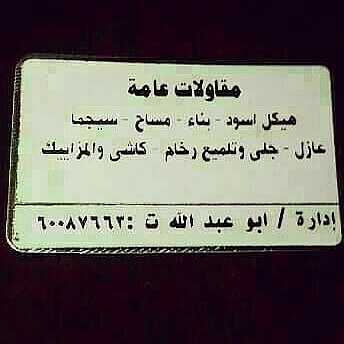 مقاولات عامة
هيكل اسود - بناء - مساح - سيجما
عازل - جلى وتلميع رخام - كاشى والمزاييك
إدارة / ابو عبد الله ت : ٦٠٠٨٧٦٦٣